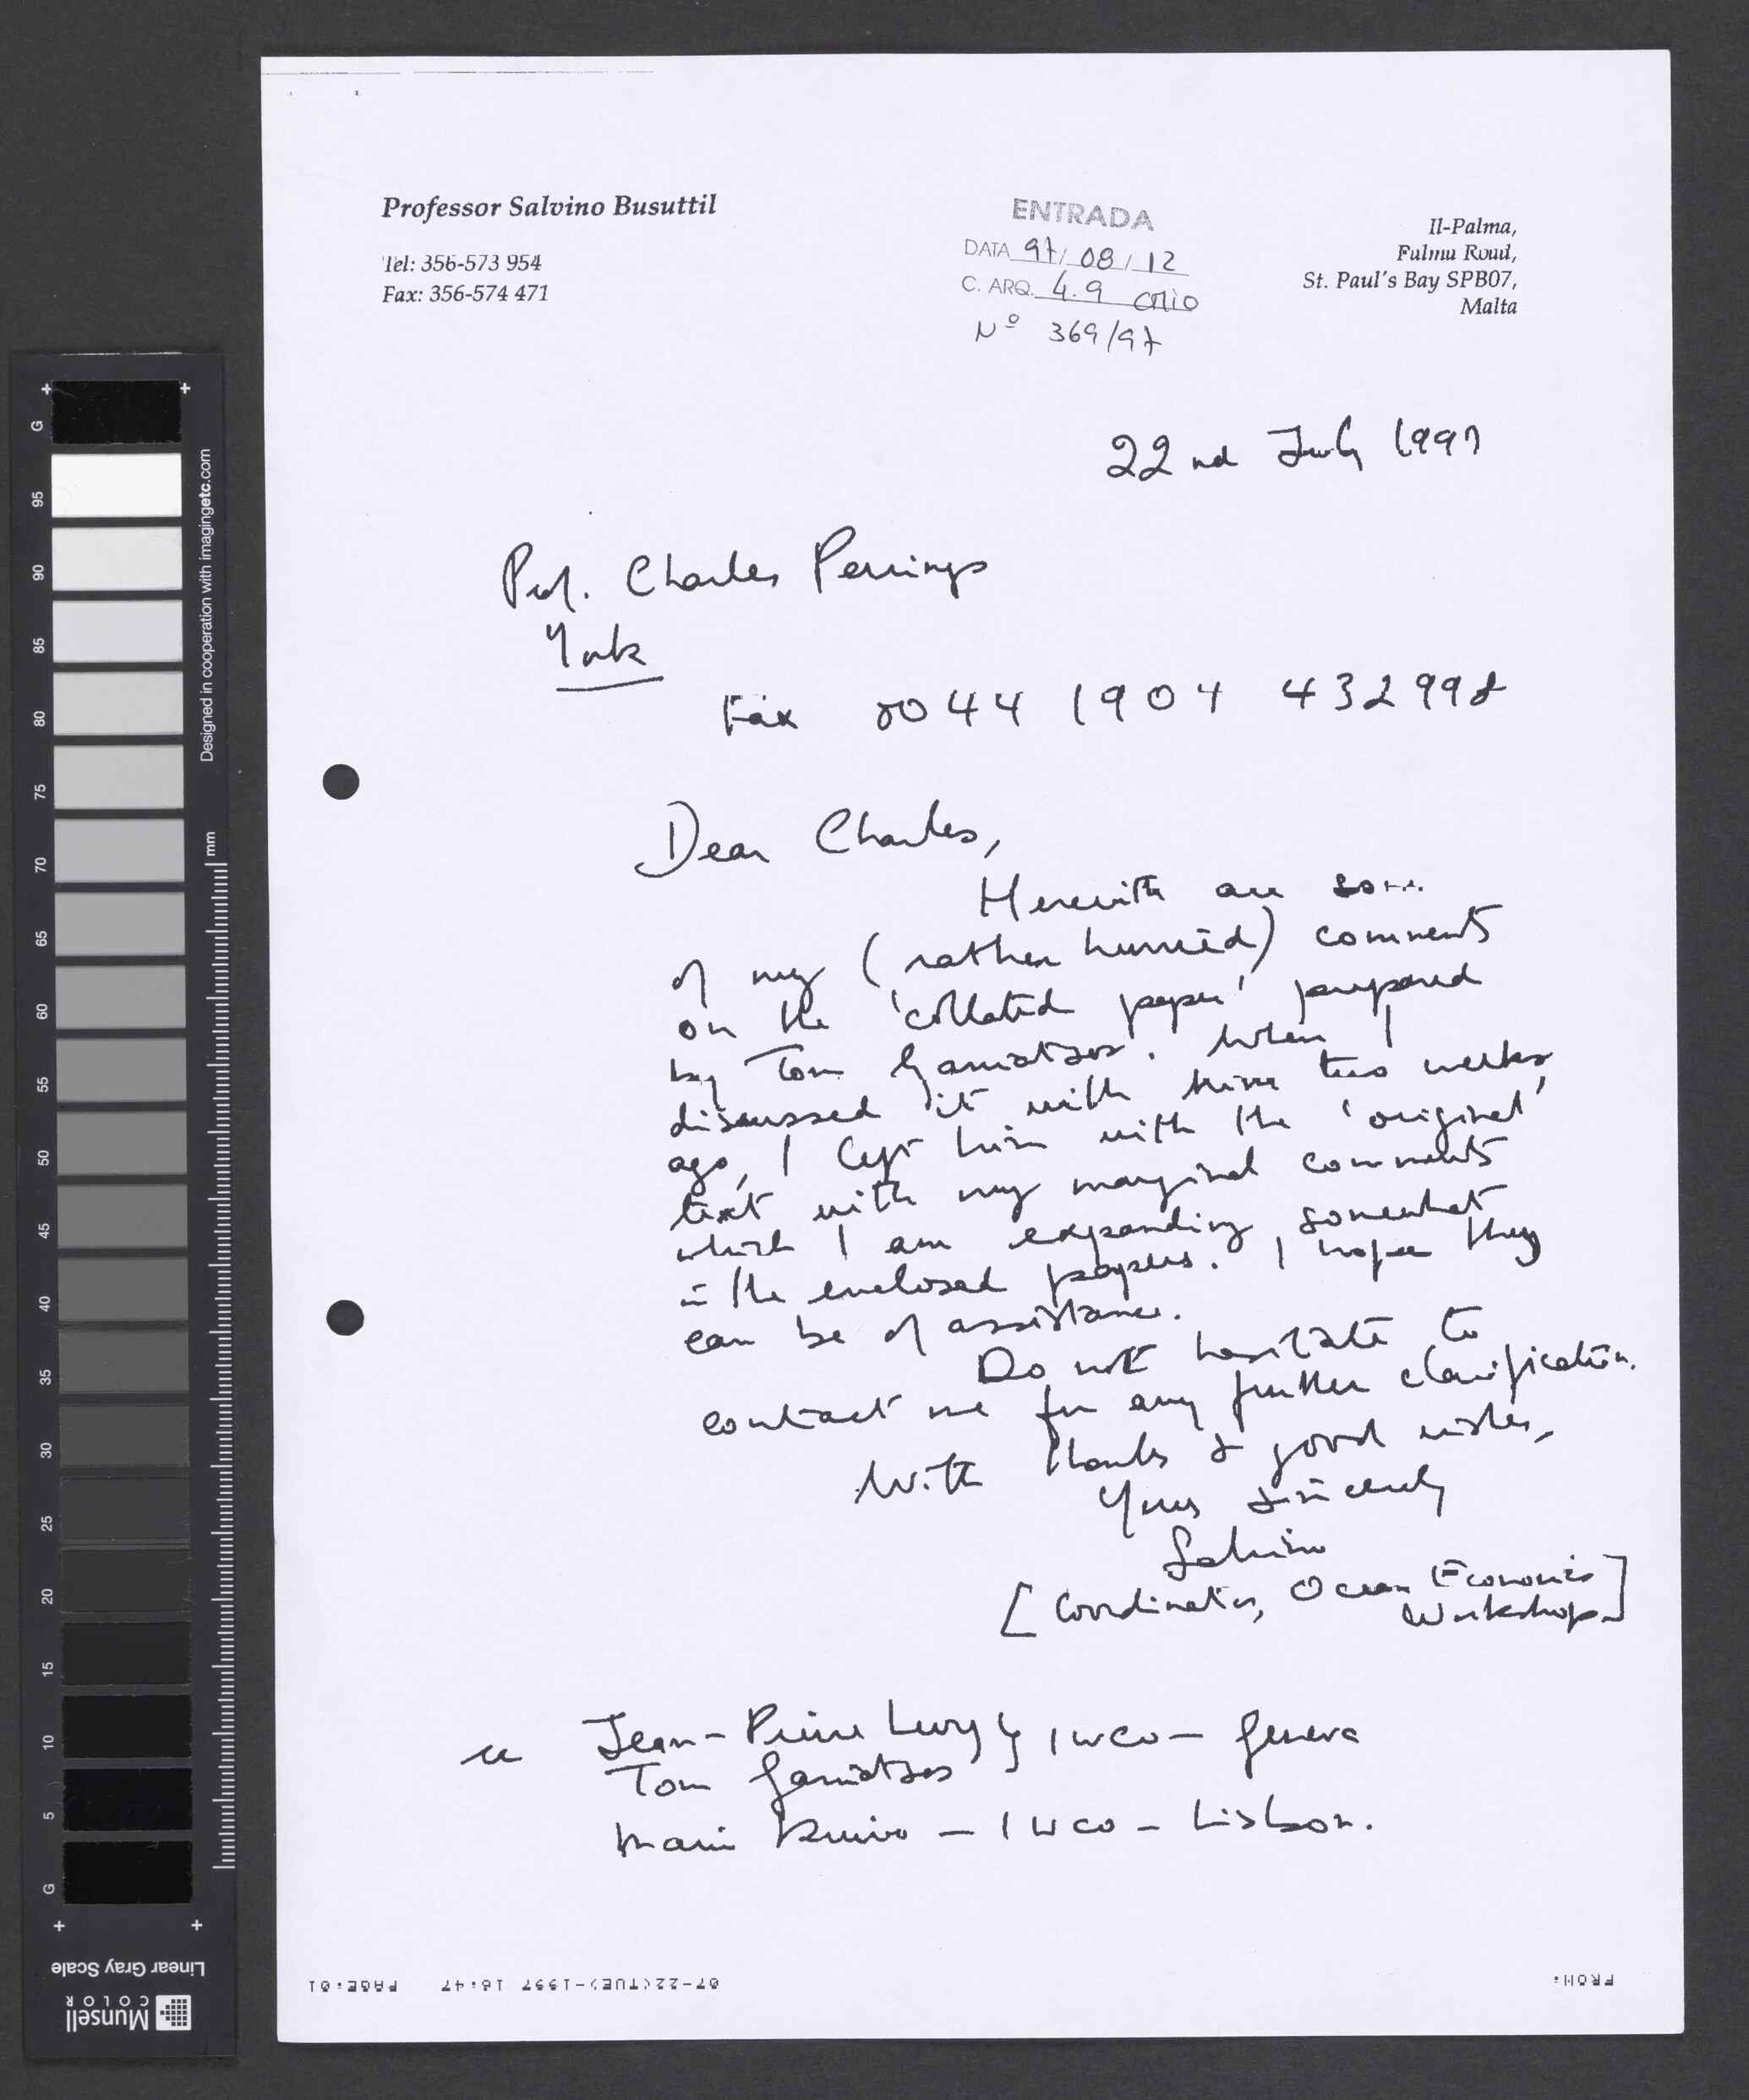 Professor Salvino Busuttil
Tel: 356-573 954
Fax: 356-574 471
ENTRADA
DATA 97/08/12
C. ARQ. 4.9 CMIO
Nº 369/97
Il-Palma,
Palma Road,
St. Paul's Bay SPB07,
Malta
22nd July 1997
Prof. Charles Perrings
York
Fax 0044 1904 432998
Dear Charles,
Herewith are some
of my (rather hurried) comments
on the 'collated paper' prepared
by Tom Ganiatsos. When I
discussed it with him two weeks
ago, I left him with the 'original'
text with my marginal comments
which I am expanding somewhat
in the enclosed papers. I hope they
can be of assistance.
Do not hesitate to
contact me for any further clarification.
With thanks & good wishes,
Yours sincerely
Salvino
[Coordinator, Ocean Economics
Workshop]
cc Jean-Pierre Levy } IWCO - Geneva
Tom Ganiatsos
Mario Ruivo - IWCO - Lisbon.
FROM:
07-22(TUE)-1997 16:47 PAGE:01
G
95
90
85
80
75
70
65
60
55
50
45
40
35
30
25
20
15
10
5
G
Designed in cooperation with imagingetc.com
mm
Linear Gray Scale
Munsell
COLOR